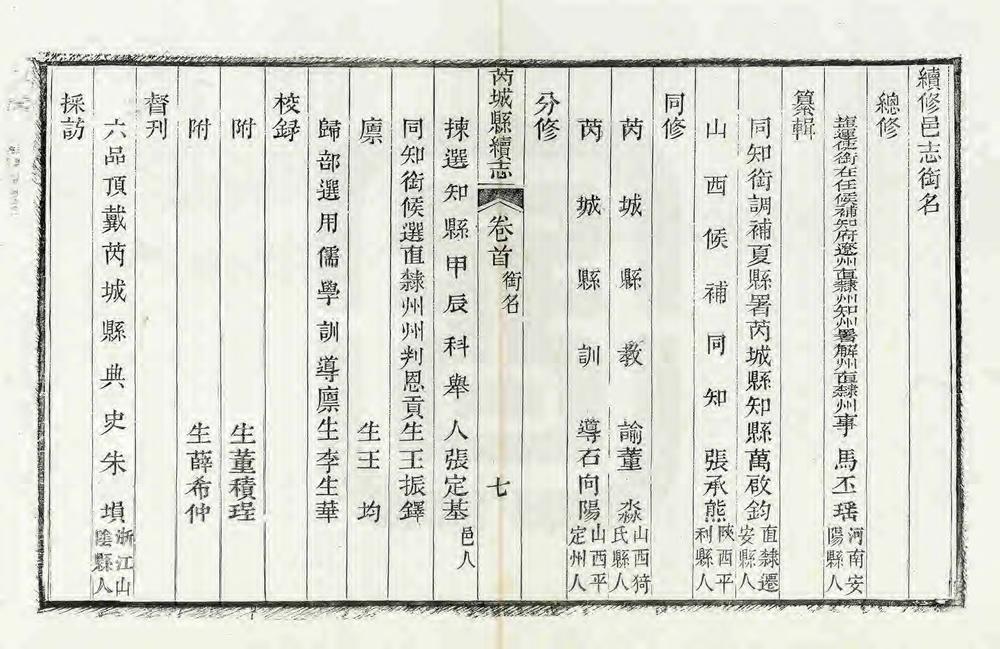 續修邑志銜名
總修
鹽運使銜在任候補知府遼州直隸州知州署解州直隸州事馬丕瑤河南安陽縣人
纂輯
同知銜調補夏縣署芮城縣知縣萬啟鈞直隸遷安縣人
山西候補同知張承熊陝西平利縣人
同修
芮城縣教諭董淼山西猗氏縣人
芮城縣訓導石向陽山西平定州人
分修
芮城縣續志 卷首 銜名 七
揀選知縣甲辰科舉人張定基邑人
同知銜候選直隸州州判恩貢生王振鐸
廩生王均
歸部選用儒學訓導廩生李生華
校録
附生董積珵
附生薛希仲
督刋
六品頂戴芮城縣典史朱塤浙江山陰縣人
採訪